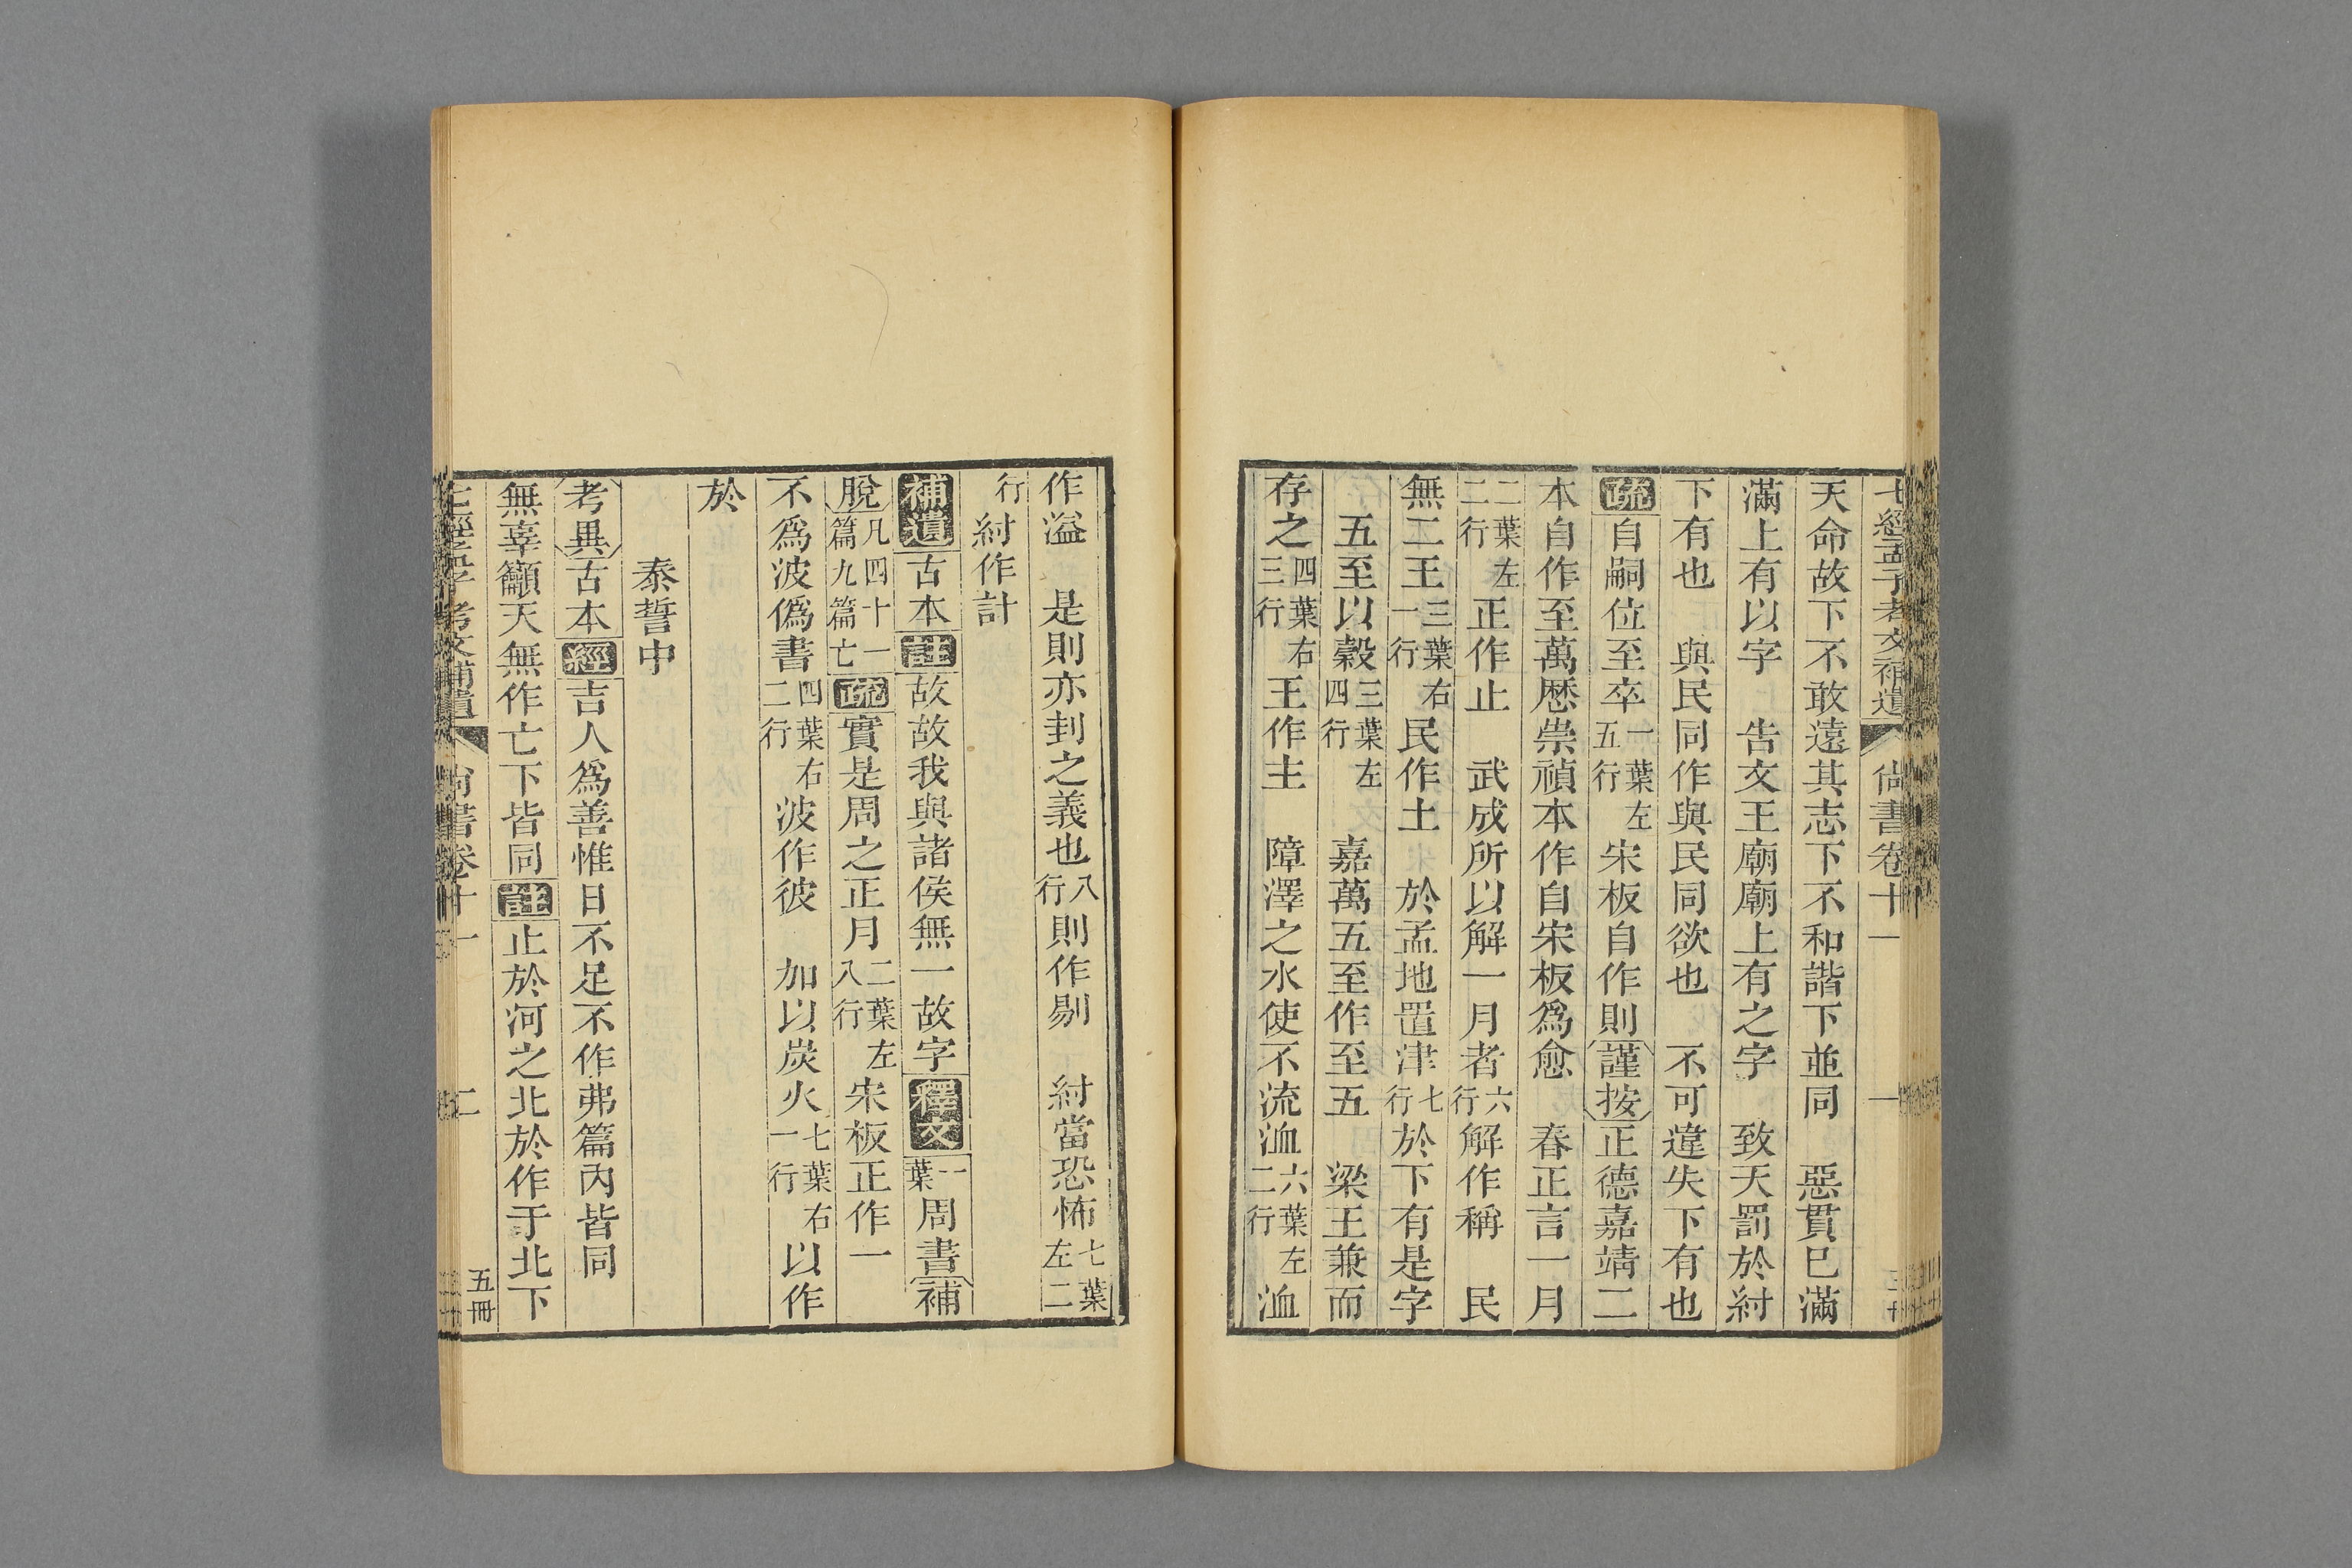 七經孟子考文補遺 尚書卷十一 一
天命故下不敢遠其志下不和諧下並同 惡貫已滿
滿上有以字 告文王廟廟上有之字 致天罰於紂
下有也 與民同作與民同欲也 不可違失下有也
疏自嗣位至卒一葉左五行宋板自作則謹按正德嘉靖二
本自作至萬歷崇禎本作自宋板爲愈 春正言一月
二葉左二行正作止 武成所以解一月者六行解作稱 民
無二王三葉右一行民作土 於孟地置津七行於下有是字
五至以穀三葉左四行 嘉萬五至作至五 梁王兼而
存之四葉右三行王作主 障澤之水使不流洫六葉左二行洫
作溢 是則亦刲之義也八行則作剔 紂當恐怖七葉左二
行紂作計
補遺古本註故故我與諸侯無一故字釋文一葉周書補
脫凡四十一篇九篇亡疏實是周之正月二葉左八行宋板正作一
不爲波僞書四葉右二行波作彼 加以炭火七葉右一行以作
於
泰誓中
考異古本經吉人爲善惟日不足不作弗篇內皆同
無辜籲天無作亡下皆同註止於河之北於作于北下
七經孟子考文補遺 尚書卷十一 二 五冊